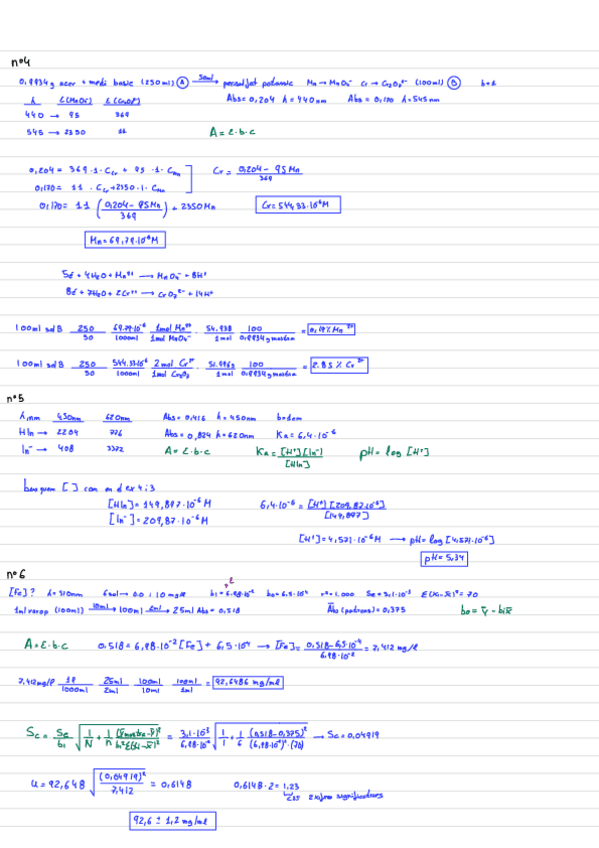 nº4
0,9934g acer + medi basic (250ml) Ⓐ 50ml→ potàssic Mn → MnO₄⁻ Cr → Cr₂O₇²⁻ (100ml) Ⓑ b=1
λ ε(MnO₄⁻) ε(Cr₂O₇²⁻) Abs=0,204 λ=440nm Abs=0,170 λ=545nm
440 → 95 369
545 → 2350 11 A=ε·b·c
0,204 = 369·1·C_Cr + 95·1·C_Mn Cr = (0,204 - 95Mn)/369
0,170 = 11·C_Cr + 2350·1·C_Mn
0,170 = 11 ((0,204 - 95Mn)/369) + 2350Mn Cr=544,33·10⁻⁶M
Mn=69,79·10⁻⁶M
5e⁻ + 4H₂O + Mn²⁺ → MnO₄⁻ + 8H⁺
8e⁻ + 7H₂O + 2Cr → CrO₇²⁻ + 14H⁺
100ml sol B 250/50 69.79·10⁻⁶/1000ml 1mol Mn²⁺/1mol MnO₄⁻ · 54.938/1mol 100/0,9934g mostra = 0,19% Mn²⁺
100ml sol B 250/50 544.33·10⁻⁶/1000ml 2mol Cr/1mol Cr₂O₇ · 51.996g/1mol 100/0,9934g mostra = 2.85% Cr
nº5
λ,nm 450nm 620nm Abs=0,416 λ=450nm b=1cm
HIn → 2204 776 Abs=0,824 λ=620nm Ka=6,4·10⁻⁶
In⁻ → 408 3372 A=ε·b·c Ka=[H⁺][In⁻]/[HIn] pH=log [H⁺]
[ ] com en el ex 4 i 3
[HIn]=149,897·10⁻⁶M 6,4·10⁻⁶ = [H⁺][209,87·10⁻⁶]/[149,897]
[In⁻]=209,87·10⁻⁶M
[H⁺]=4,571·10⁻⁶M → pH=log[4,571·10⁻⁶]
pH=5,34
nº6
[Fe]? λ=510nm 6 sol → 0.0 i 10 mg/l b₁=6.98·10⁻² b₀=6.5·10⁻⁴ r²=1.000 Se=3.1·10⁻³ Σ(xi-x̄)²=70
1ml xarop (100ml) 10ml→ 100ml 2ml→ 25ml Abs=0,518 Abs(patrons)=0,375 b₀=ȳ-b₁x̄
A=ε·b·c 0,518=6,98·10⁻²[Fe]+6,5·10⁻⁴ → [Fe]=(0,518-6,5·10⁻⁴)/6.98·10⁻² = 7,412 mg/l
7,412mg/l 1l/1000ml 25ml/2ml 100ml/10ml 100ml/1ml = 92,6486 mg/ml
Sc = Se/b₁ √(1/N + 1/n (ȳmostra-ȳ)²/b₁²Σ(xi-x̄)²) = 3,1·10⁻³/6,98·10⁻² √(1/1 + 1/6 (0,518-0,375)²/(6,98·10⁻²)²·(70)) → Sc=0,04919
u=92,648 √((0,04919)²/7,412) = 0,6148 0,6148·2=1,23
2 xifres significatives
92,6 ± 1,2 mg/ml